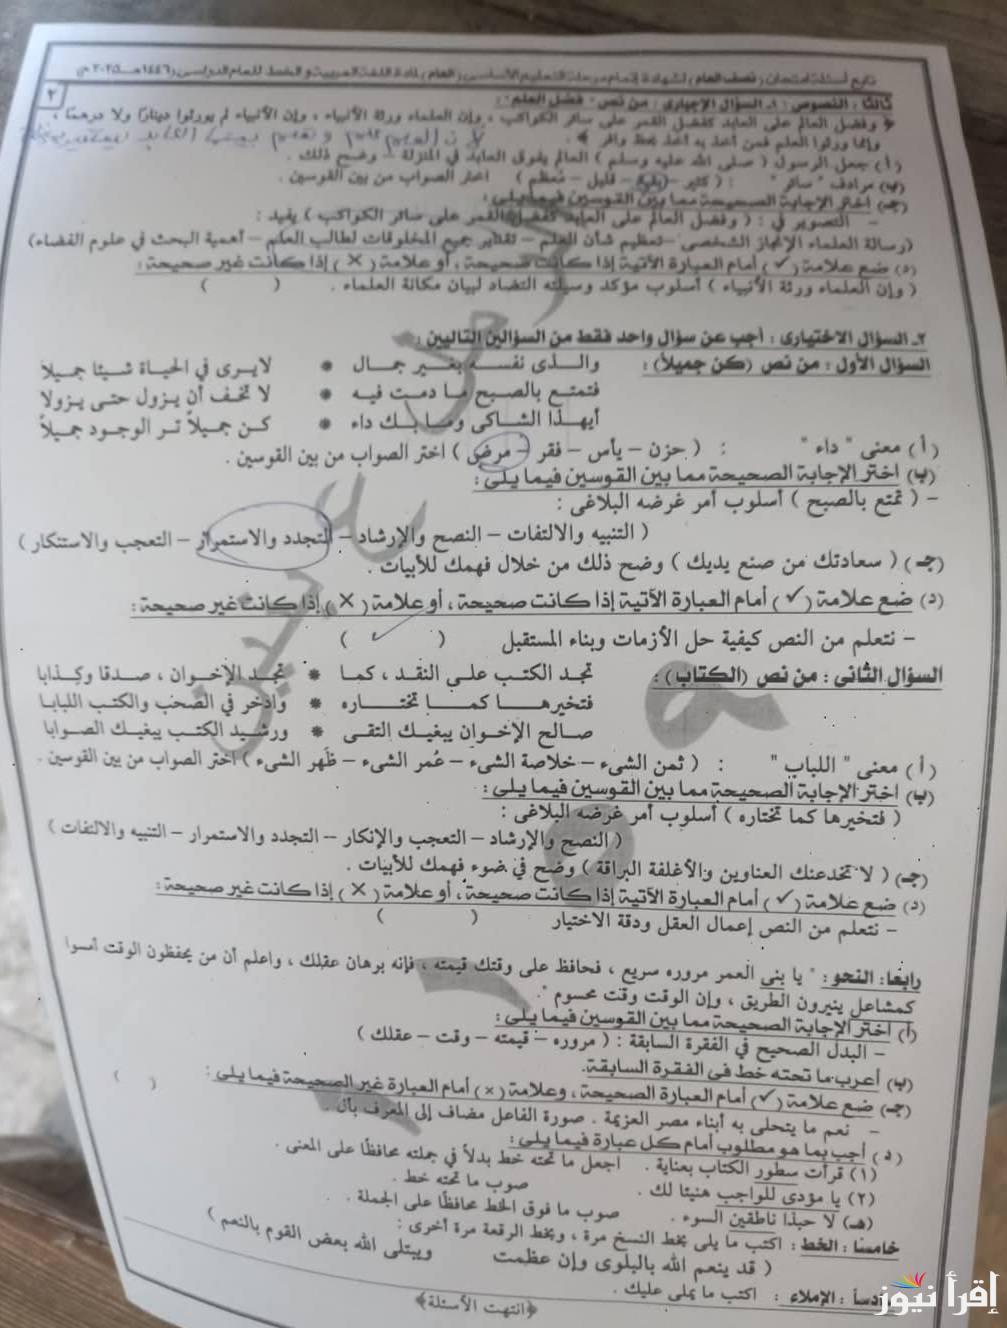 تابع أسئلة امتحان (نصف العام) لشهادة إتمام مرحلة التعليم الأساسى (العام) لمادة اللغة العربية والخط للعام الدراسى (١٤٤٦هـ ـ ٢٠٢٥م)
٢
ثالثًا : النصوص : ١ـ السؤال الإجبارى : من نص " فضل العلم " :
﴿ وفضل العالم على العابد كفضل القمر على سائر الكواكب ، وإن العلماء ورثة الأنبياء ، وإن الأنبياء لم يورثوا دينارًا ولا درهمًا ،
وإنما ورثوا العلم فمن أخذ به أخذ بحظ وافر ﴾ .
(أ) جعل الرسول ( صلى الله عليه وسلم ) العالم يفوق العابد في المنزلة – وضح ذلك .
(ب) مرادف " سائر " : ( كثير – بقية – قليل – مُعظم ) اختر الصواب من بين القوسين .
(جـ) اختر الإجابة الصحيحة مما بين القوسين فيما يلى :
– التصوير في : ( وفضل العالم على العابد كفضل القمر على سائر الكواكب ) يفيد :
(رسالة العلماء الإنجاز الشخصى – تعظيم شأن العلم – تقدير جميع المخلوقات لطالب العلم – أهمية البحث في علوم الفضاء)
(د) ضع علامة (✓) أمام العبارة الآتية إذا كانت صحيحة ، أو علامة (×) إذا كانت غير صحيحة :
( وإن العلماء ورثة الأنبياء ) أسلوب مؤكد وسيلته التضاد لبيان مكانة العلماء . ( )
٢ـ السؤال الاختيارى : أجب عن سؤال واحد فقط من السؤالين التاليين :
السؤال الأول : من نص (كن جميلاً) : والـذى نفسـه بغـير جمـال * لايـرى في الحياة شـيئا جميلاً
فتمتـع بالصبـح مـا دمت فيـه * لا تخـف أن يـزول حتـى يـزولا
أيهـذا الشـاكى ومـا بـك داء * كـن جميـلاً تـر الوجـود جميلاً
(أ) معنى " داء " : ( حزن – يأس – فقر – مرض ) اختر الصواب من بين القوسين .
(ب) اختر الإجابة الصحيحة مما بين القوسين فيما يلى :
– ( تمتع بالصبح ) أسلوب أمر غرضه البلاغى :
( التنبيه والالتفات – النصح والإرشاد – التجدد والاستمرار – التعجب والاستنكار )
(جـ) ( سعادتك من صنع يديك ) وضح ذلك من خلال فهمك للأبيات .
(د) ضع علامة (✓) أمام العبارة الآتية إذا كانت صحيحة ، أو علامة (×) إذا كانت غير صحيحة :
– نتعلم من النص كيفية حل الأزمات وبناء المستقبل ( ) ✓
السؤال الثانى : من نص (الكتاب) : تجد الكتب علـى النقـد ، كمـا * تجـد الإخـوان ، صدقا وكـذابا
فتخيرهـا كمـا تختـاره * وادّخر في الصّحب والكتب اللبابا
صـالح الإخـوان يبغيـك التقـى * ورشـيد الكتب يبغيـك الصـوابا
(أ) معنى " اللباب " : ( ثمن الشىء – خلاصة الشىء – عُمر الشىء – ظَهر الشىء ) اختر الصواب من بين القوسين .
(ب) اختر الإجابة الصحيحة مما بين القوسين فيما يلى :
( فتخيرها كما تختاره ) أسلوب أمر غرضه البلاغى :
( النصح والإرشاد – التعجب والإنكار – التجدد والاستمرار – التنبيه والالتفات )
(جـ) ( لا تخدعنك العناوين والأغلفة البراقة ) وضح في ضوء فهمك للأبيات .
(د) ضع علامة (✓) أمام العبارة الآتية إذا كانت صحيحة ، أو علامة (×) إذا كانت غير صحيحة :
– نتعلم من النص إعمال العقل ودقة الاختيار ( )
رابعًا: النحو : " يا بنى العمر مروره سريع ، فحافظ على وقتك قيمته ، فإنه برهان عقلك ، واعلم أن من يحفظون الوقت أمسوا
كمشاعل ينيرون الطريق ، وإن الوقت وقت محسوم ".
(أ) اختر الإجابة الصحيحة مما بين القوسين فيما يلى :
– البدل الصحيح في الفقرة السابقة : ( مروره – قيمته – وقت – عقلك )
(ب) أعرب ما تحته خط في الفقرة السابقة.
(جـ) ضع علامة (✓) أمام العبارة الصحيحة ، وعلامة (×) أمام العبارة غير الصحيحة فيما يلى :
– نعم ما يتحلى به أبناء مصر العزيمة . صورة الفاعل مضاف إلى المعرف بأل . ( )
(د) أجب بما هو مطلوب أمام كل عبارة فيما يلى :
(١) قرأت سطور الكتاب بعناية . اجعل ما تحته خط بدلاً في جملته محافظًا على المعنى .
(٢) يا مؤدى للواجب هنيئا لك . صوب ما تحته خط .
(هـ) لا حبذا ناطقين السوء . صوب ما فوق الخط محافظًا على الجملة .
خامسًا : الخط : اكتب ما يلى بخط النسخ مرة ، وبخط الرقعة مرة أخرى :
( قد ينعم الله بالبلوى وإن عظمت ويبتلى الله بعض القوم بالنعم )
سادسًا : الإملاء : اكتب ما يملى عليك .
﴿انتهت الأسئلة﴾
إقرأ نيوز